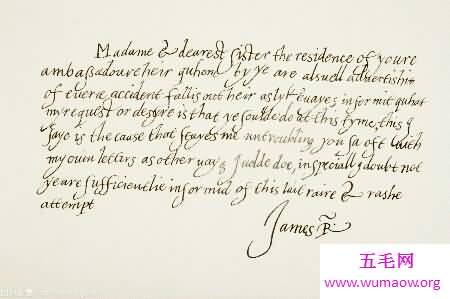 Madame & dearest sister the residence of youre
ambassadoure heir quhom by ye are alsuell advertishit
of everie accident fallis out heir as lykewayes informit quhat
my request or desyre is that ye soulde do at this tyme, this I
saye is the cause that stayes me untroubling you sa oft with
my ouin lettirs as other wayes I uolde doe, in speciall I doubt not
ye are sufficientlie informid of this last raire & rashe
attempt
James R
五毛网
www.wumaow.org